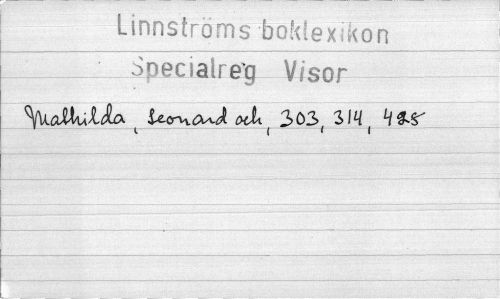 Linnströms boklexikon
Specialreg Visor
Mathilda, Leonard och, 303, 314, 425